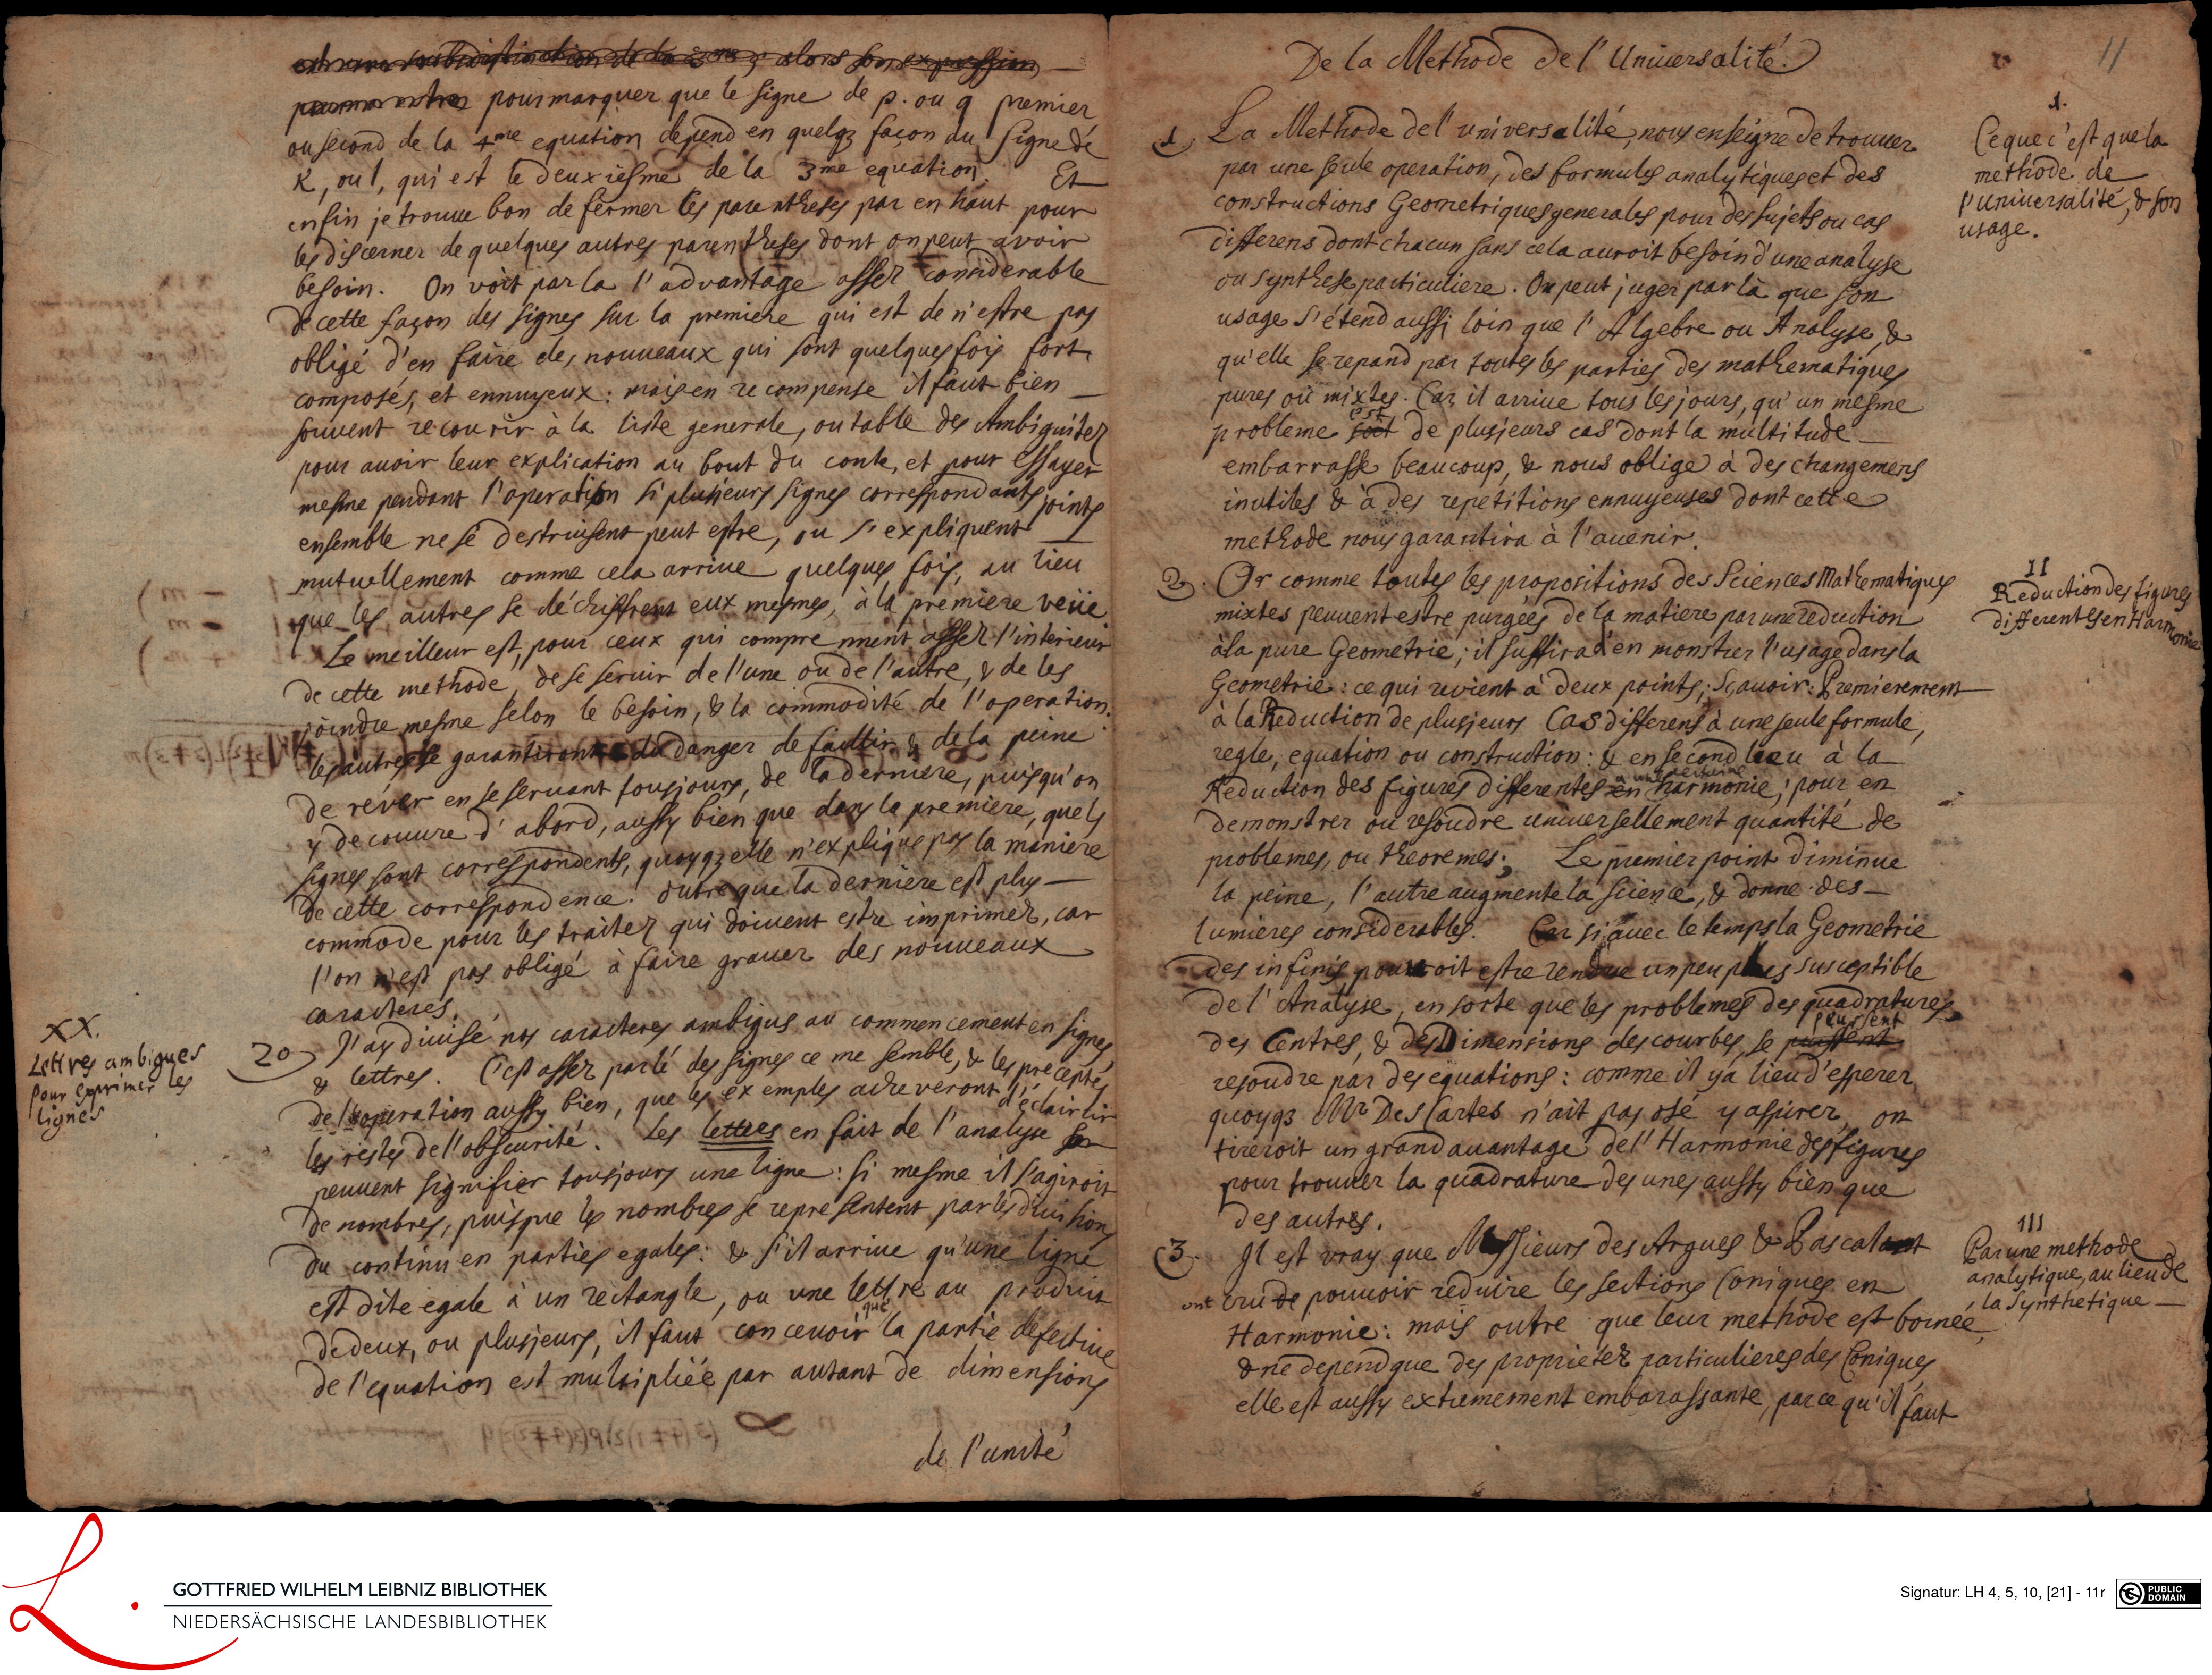 pour marquer que le signe de p. ou q premier
ou second de la 4me equation depend en quelqz façon du signe de
K, ou l, qui est le deuxiesme de la 3me equation. Et
enfin je trouue bon de fermer les parentheses par en haut pour
les discerner de quelques autres parentheses dont on peut avoir
besoin. On voit par la l'advantage assez considerable
de cette façon des signes sur la premiere qui est de n'estre pas
obligé d'en faire des nouueaux qui sont quelques fois fort
composés, et ennuyeux: mais en recompense il faut bien
souvent recourir à la liste generale, ou table des Ambiguitez
pour auoir leur explication au bout du conte, et pour essayer
mesme pendant l'operation si plusieurs signes correspondants joints
ensemble ne se destruisent peut estre, ou s'expliquent
mutuellement comme cela arriue quelques fois, au lieu
que les autres se déchiffrent eux mesmes, à la premiere veüe
Le meilleur est, pour ceux qui comprennent assez l'interieur
de cette methode de se seruir de l'une ou de l'autre, & de les
joindre mesme selon le besoin, & la commodité de l'operation.
les autres se garantiront du danger de faillir & de la peine
de réver en se seruant tousjours, de la derniere, puisqu'on
y decouure d'abord, aussy bien que dans la premiere, quels
signes sont correspondents, quoyqz elle n'explique pas la maniere
de cette correspondence. Outre que la derniere est plus
commode pour les traitez qui doiuent estre imprimez, car
l'on n'est pas obligé à faire grauer des nouueaux
caracteres.
XX.
Lettres ambigues
pour exprimer les
lignes
20 J'ay diuisé nos caracteres ambigus au commencement en signes
& lettres. C'est assez parlé des signes ce me semble, & les preceptes
de l'operation aussy bien, que les exemples acheveront d'éclaircir
les restes de l'obscurité. Les lettres en fait de l'analyse
peuuent signifier tousjours une ligne: si mesme il s'agiroit
de nombres, puisque les nombres se representent par les diuisions
du continu en parties egales: & s'il arriue qu'une ligne
est dite egale à un rectangle, ou une lettre au produit
de deux, ou plusieurs, il faut concevoir que la partie defectiue
de l'equation est multipliée par autant de dimensions
de l'unité
11
De la Methode de l'Universalité.
1. La Methode de l'universalité, nous enseigne de trouuer
par une seule operation, des formules analytiques et des
constructions Geometriques generales pour des sujets ou cas
differens dont chacun sans cela auroit besoin d'une analyse
ou synthese particuliere. On peut juger par là que son
usage s'étend aussi loin que l'Algebre ou Analyse, &
qu'elle se repand par toutes les parties des mathematiques
pures ou mixtes. Car il arriue tous les jours, qu'un mesme
probleme est de plusieurs cas dont la multitude
embarrasse beaucoup, & nous oblige à des changemens
inutiles & à des repetitions ennuyeuses dont cette
methode nous garantira à l'auenir.
1.
Ce que c'est que la
methode de
l'universalité, & son
usage.
2. Or comme toutes les propositions des Sciences Mathematiques
mixtes peuuent estre purgées de la matiere par une reduction
à la pure Geometrie; il suffira d'en monstrer l'usage dans la
Geometrie: ce qui revient à deux points; sçavoir: Premierement
à la Reduction de plusieurs Cas differens à une seule formule,
regle, equation ou construction: & en second lieu à la
Reduction des figures differentes à une certaine harmonie; pour en
demonstrer ou resoudre universellement quantité de
problemes, ou theoremes; Le premier point diminue
la peine, l'autre augmente la science, & donne des
lumieres considerables. Car si avec le temps la Geometrie
des infinis pourroit estre rendue un peu plus susceptible
de l'Analyse, en sorte que les problemes des quadratures,
des Centres, & des Dimensions des courbes, se peussent
resoudre par des equations: comme il y a lieu d'esperer,
quoyqz Mr Des Cartes n'ait pas osé y assurer, on
tireroit un grand auantage de l'Harmonie des figures
pour trouuer la quadrature des unes aussy bien que
des autres.
II
Reduction des figures
differentes en Harmonie
3. Il est vray que Messieurs des Argues & Pascal
ont crû de pouuoir reduire les sections Coniques en
Harmonie: mais outre que leur methode est bornée,
& ne depend que des proprietez particulieres des Coniques,
elle est aussy extremement embarassante, parce qu'il faut
III
Par une methode
analytique, au lieu de
la Synthetique
GOTTFRIED WILHELM LEIBNIZ BIBLIOTHEK
NIEDERSÄCHSISCHE LANDESBIBLIOTHEK
Signatur: LH 4, 5, 10, [21] - 11r
PUBLIC DOMAIN